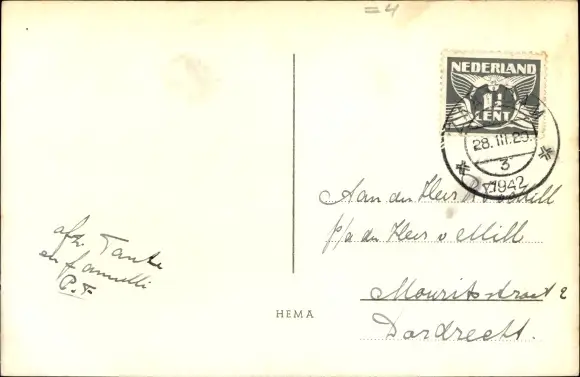 =4
NEDERLAND
1½
CENT
28.III.23
3
1942
Aan den Heer v Mill
p/a den Heer v Mill
Mauritsstraat 2
Dordrecht.
afz. Tante
en famielli
P.T
HEMA